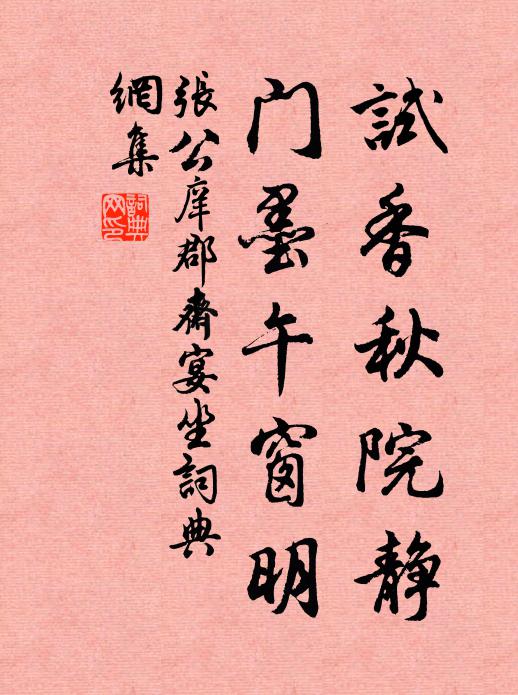 試香秋院静
门墨午窗明
張公庠郡齋宴坐詞典
網集
詞典
网印